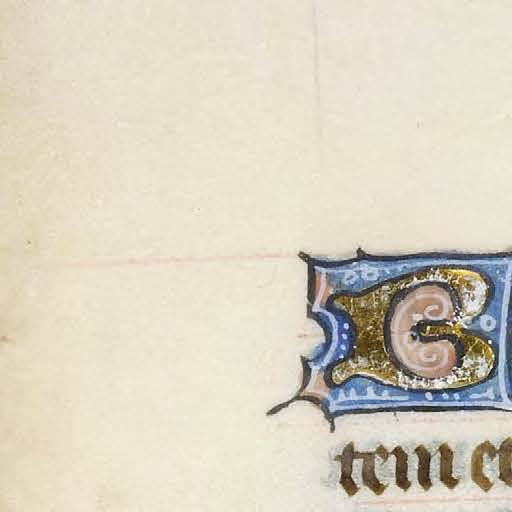 E
tem et